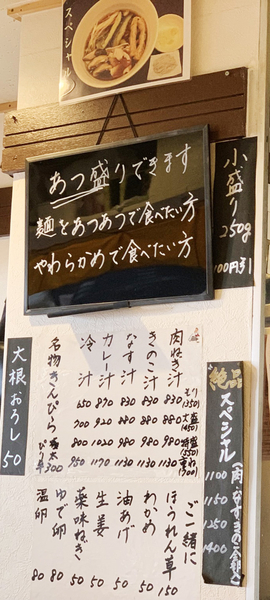 スペシャル
あつ盛りできます
麺をあつあつで食べたい方
やわらかめで食べたい方
小盛り
250g
100円引
肉ねぎ汁 830 880 980 1130
きのこ汁 830 880 980 1130
なす汁 830 880 980 1130
カレー汁 870 920 1020 1170
冷汁 650 700 800 950
名物きんぴら
300
大根おろし
50
絶品
スペシャル
1100
1150
1250
1400
ご一緒に
ほうれん草 150
わかめ 50
油あげ 50
生姜 50
薬味ねぎ 50
ゆで卵 80
温卵 80